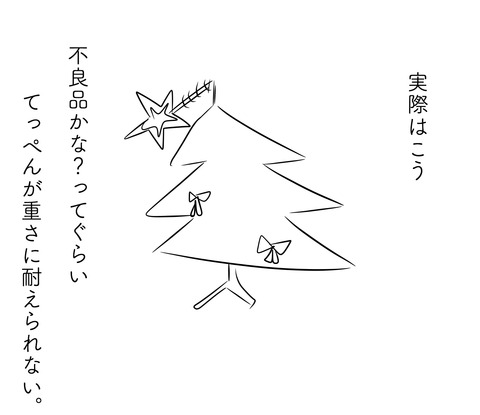 実際はこう
不良品かな？ってぐらい
てっぺんが重さに耐えられない。